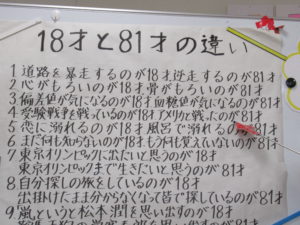 18才と81才の違い
1 道路を暴走するのが18才、逆走するのが81才
2 心がもろいのが18才、骨がもろいのが81才
3 偏差値が気になるのが18才、血糖値が気になるのが81才
4 受験戦争を戦っているのが18才、アメリカと戦ったのが81才
5 恋に溺れるのが18才、風呂で溺れるのが81才
6 まだ何も知らないのが18才、もう何も覚えていないのが81才
7 東京オリンピックに出たいと思うのが18才
東京オリンピックまで生きたいと思うのが81才
8 自分探しの旅をしているのが18才
出掛けたまま分からなくなって皆で探しているのが81才
9 嵐というと松本潤を思い出すのが18才